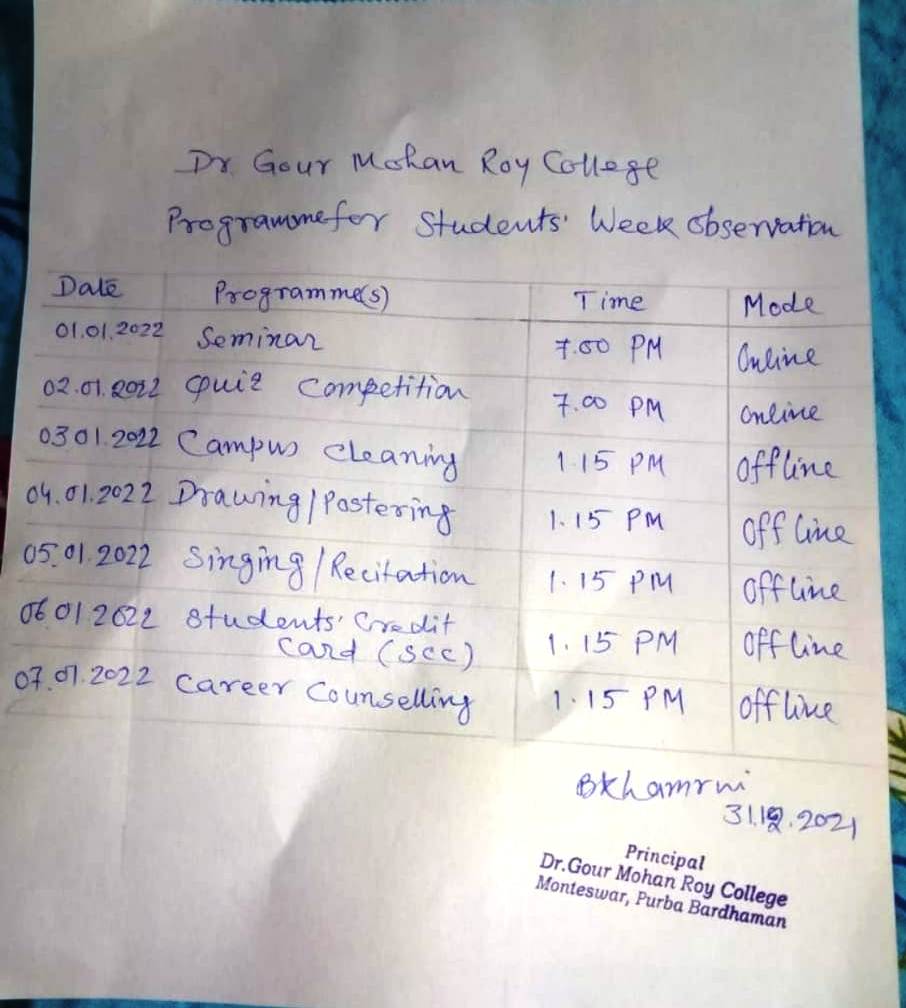 Dr. Gour Mohan Roy College
Programme for Students' Week Observation
Date Programme(s) Time Mode
01.01.2022 Seminar 7.00 PM Online
02.01.2022 Quiz Competition 7.00 PM Online
03.01.2022 Campus Cleaning 1.15 PM Offline
04.01.2022 Drawing/Postering 1.15 PM Offline
05.01.2022 Singing/Recitation 1.15 PM Offline
06.01.2022 Students' Credit
Card (SCC) 1.15 PM Offline
07.01.2022 Career Counselling 1.15 PM Offline
31.12.2021
Principal
Dr.Gour Mohan Roy College
Monteswar, Purba Bardhaman